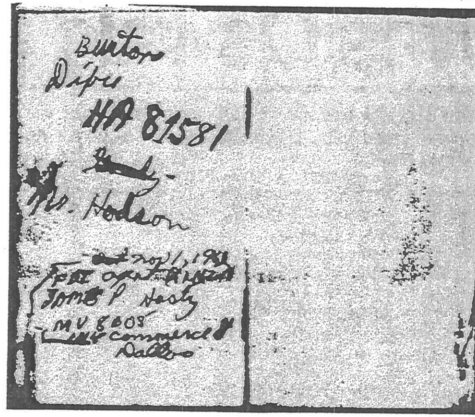 Burton
Dipu
HA 81581
Mr. Hodson
Nov 1, 1963
FBI agent
James P Hosty
MU 8605
Commerce St
Dallas